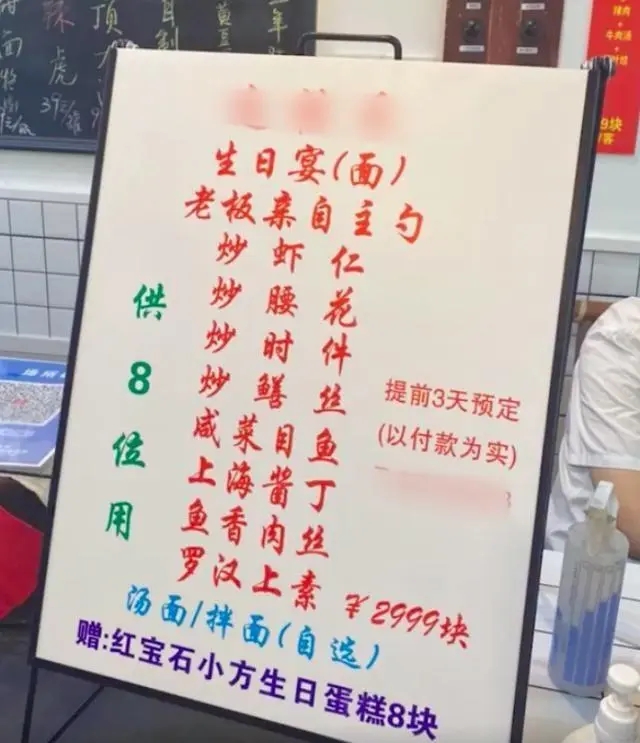 生日宴(面)
老板亲自主勺
炒虾仁
炒腰花
炒时件
炒鳝丝
咸菜目鱼
上海酱丁
鱼香肉丝
罗汉上素 ￥2999块
汤面/拌面(自选)
赠:红宝石小方生日蛋糕8块
供8位用
提前3天预定
(以付款为实)
辣肉
+
牛肉汤
+
9块
/客
顶
虎
39元/罐